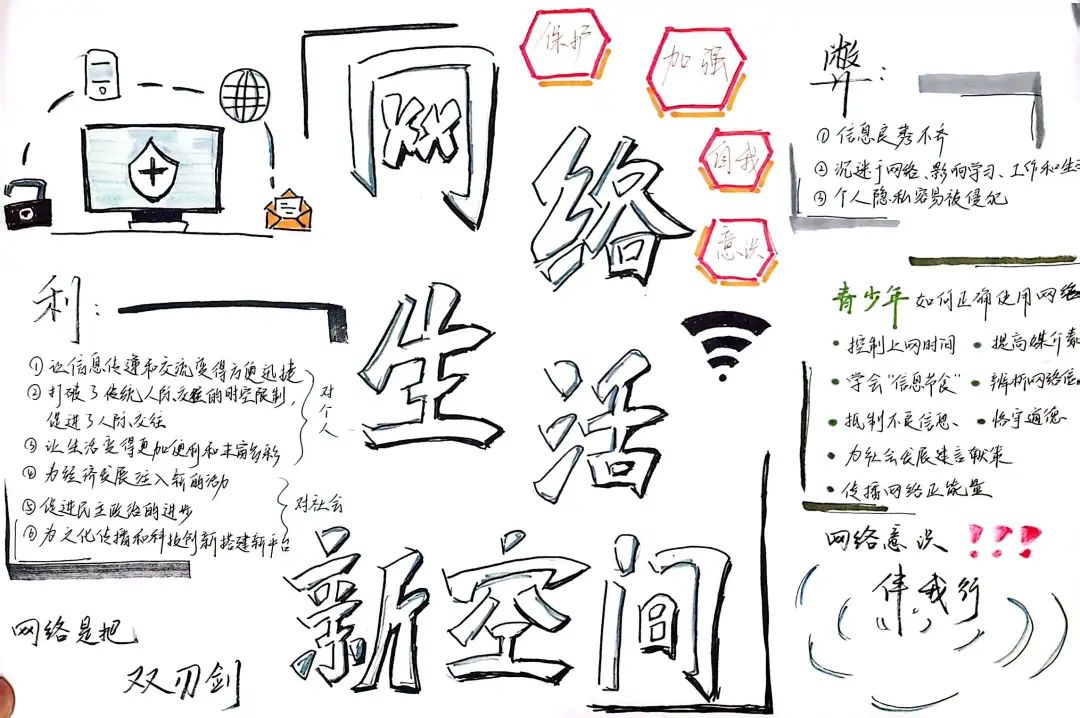 网络
生活
新空间
保护
加强
自我
意识
利：
①让信息传递和交流变得方便迅捷
②打破了传统人际交往的时空限制，
促进了人际交往
③让生活变得更加便利和丰富多彩
对个人
④为经济发展注入新的活力
⑤促进民主政治的进步
⑥为文化传播和科技创新搭建新平台
对社会
网络是把
双刃剑
弊：
①信息良莠不齐
②沉迷于网络、影响学习、工作和生
③个人隐私容易被侵犯
青少年如何正确使用网络
·控制上网时间 ·提高媒介素
·学会“信息节食” ·辨析网络信
·抵制不良信息、 ·恪守道德
·为社会发展建言献策
·传播网络正能量
网络意识！！！
伴我行